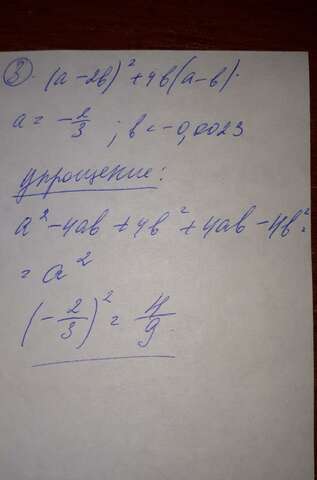 ③. (а - 2в)² + 4в(а-в).
а = -2/3 ; в = -0,0023
упрощение:
а² - 4ав + 4в² + 4ав - 4в² =
= а²
(-2/3)² = 4/9